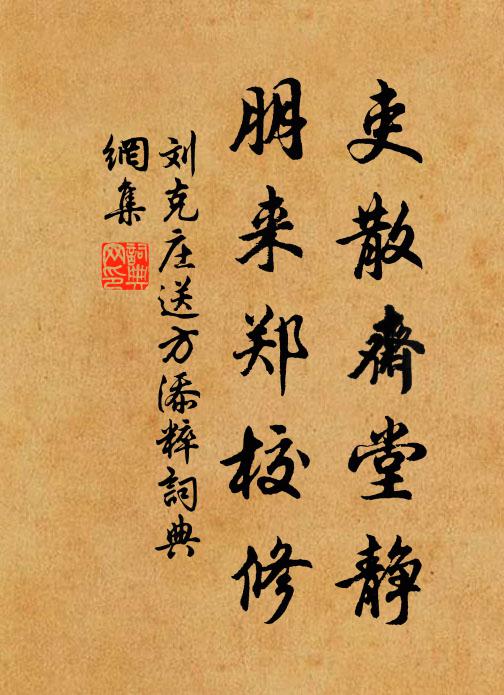 吏散斋堂静
朋来郑校修
刘克庄送方添粹詞典
網集
詞典
网印